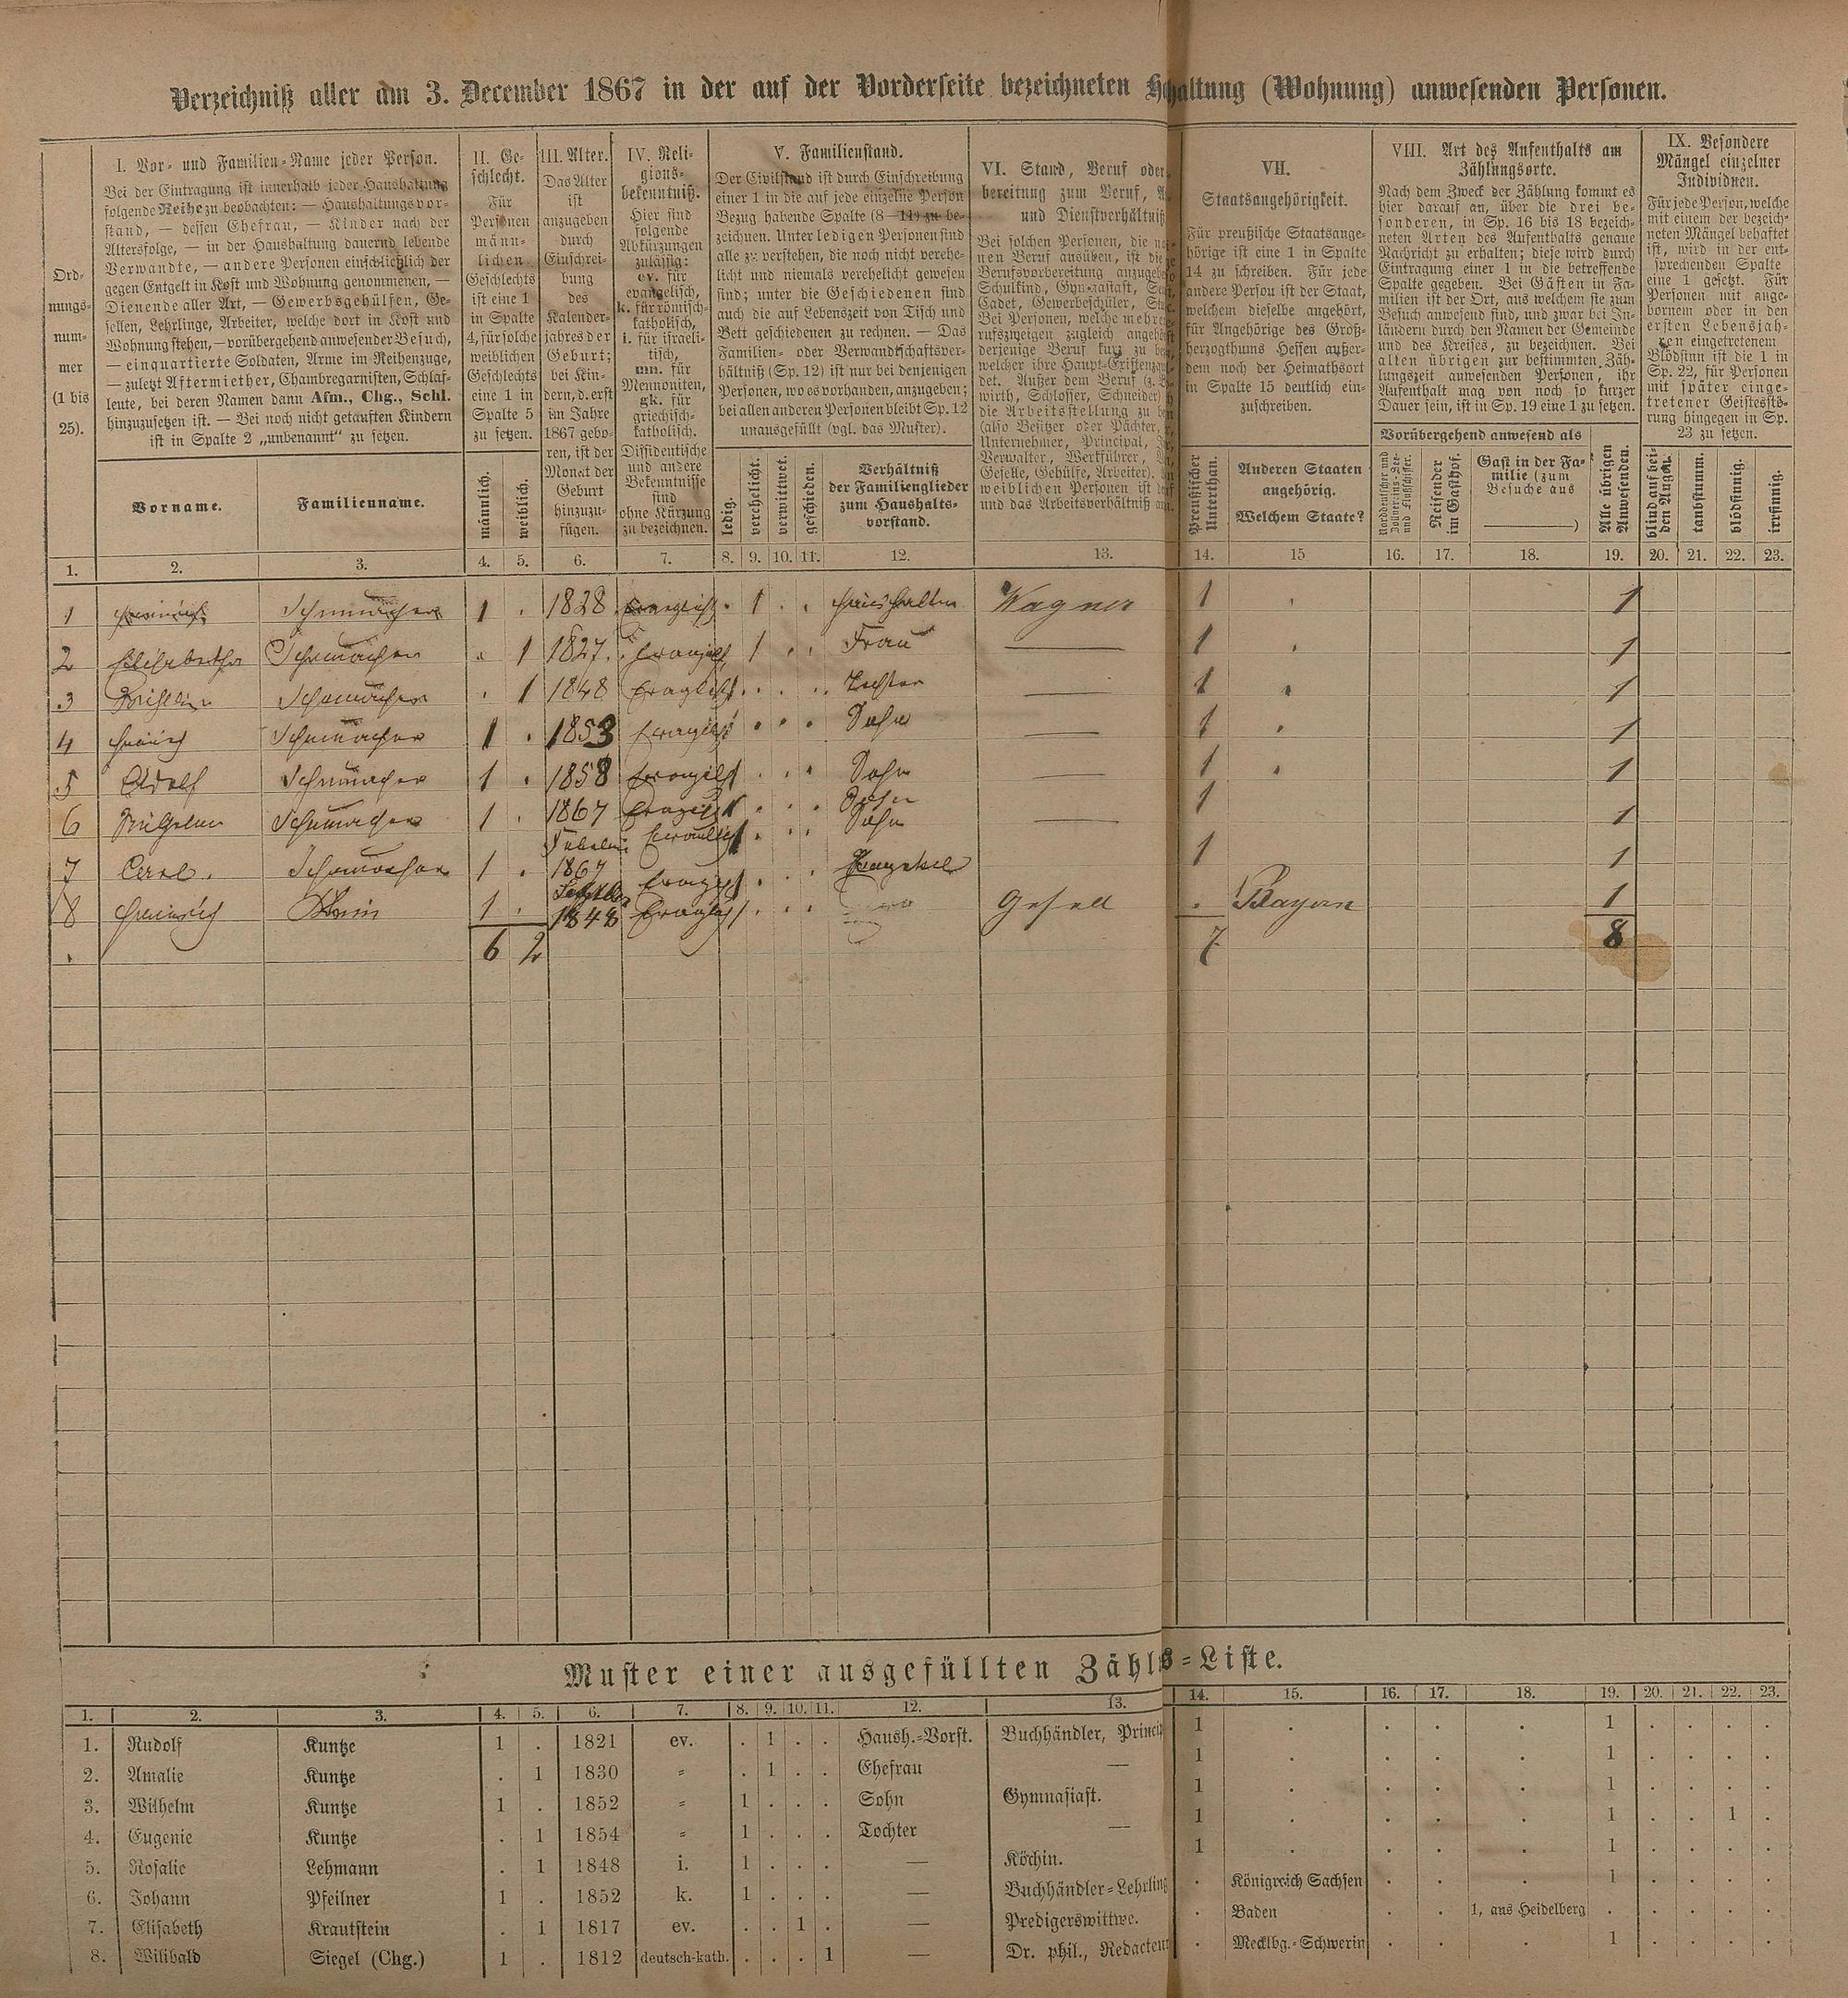 Verzeichniß aller am 3. December 1867 in der auf der Vorderseite bezeichneten haltung (Wohnung) anwesenden Personen.
Ord-
nungs-
num-
mer
(1 bis
25).
I. Vor- und Familien-Name jeder Person.
Bei der Eintragung ist innerhalb jeder Haushaltung
folgende Reihe zu beobachten: — Haushaltungsvor-
stand, — dessen Ehefrau, — Kinder nach der
Altersfolge, — in der Haushaltung dauernd lebende
Verwandte, — andere Personen einschließlich der
gegen Entgelt in Kost und Wohnung genommenen, —
Dienende aller Art, — Gewerbsgehülfen, Ge-
sellen, Lehrlinge, Arbeiter, welche dort in Kost und
Wohnung stehen, — vorübergehend anwesender Besuch,
— einquartierte Soldaten, Arme im Reihenzuge,
— zuletzt Aftermiether, Chambregarnisten, Schlaf-
leute, bei deren Namen dann Afm., Chg., Schl.
hinzuzusetzen ist. — Bei noch nicht getauften Kindern
ist in Spalte 2 „unbenannt“ zu setzen.
Vorname.
Familienname.
II. Ge-
schlecht.
Für
Personen
männ-
lichen
Geschlechts
ist eine 1
in Spalte
4, für solche
weiblichen
Geschlechts
eine 1 in
Spalte 5
zu setzen.
männlich.
weiblich.
III. Alter.
Das Alter
ist
anzugeben
durch
Einschrei-
bung
des
Kalender-
jahres der
Geburt;
bei Kin-
dern, d. erst
im Jahre
1867 gebo-
ren, ist der
Monat der
Geburt
hinzuzu-
fügen.
IV. Reli-
gions-
bekenntniß.
Hier sind
folgende
Abkürzungen
zulässig:
ev. für
evangelisch,
k. für römisch-
katholisch,
i. für israeli-
tisch,
mn. für
Mennoniten,
gk. für
griechisch-
katholisch.
Dissidentische
und andere
Bekenntnisse
sind
ohne Kürzung
zu bezeichnen.
V. Familienstand.
Der Civilstand ist durch Einschreibung
einer 1 in die auf jede einzelne Person
Bezug habende Spalte (8—11) zu be-
zeichnen. Unter ledigen Personen sind
alle zu verstehen, die noch nicht verehe-
licht und niemals verehelicht gewesen
sind; unter die Geschiedenen sind
auch die auf Lebenszeit von Tisch und
Bett geschiedenen zu rechnen. — Das
Familien- oder Verwandtschaftsver-
hältniß (Sp. 12) ist nur bei denjenigen
Personen, wo es vorhanden, anzugeben;
bei allen anderen Personen bleibt Sp. 12
unausgefüllt (vgl. das Muster).
ledig.
verehelicht.
verwittwet.
geschieden.
Verhältniß
der Familienglieder
zum Haushalts-
vorstand.
VI. Stand, Beruf oder
bereitung zum Beruf,
und Dienstverhältniß
Bei solchen Personen, die
nen Beruf ausüben, ist die
Berufsvorbereitung
Schulkind, Gymnasiast,
Cadet, Gewerbeschüler,
Bei Personen, welche
rufszweigen zugleich
derjenige Beruf kurz zu
welcher ihre Haupt-
det. Außer dem Beruf
wirth, Schlosser, Schneider)
die Arbeitsstellung zu
(also Besitzer oder Pächter,
Unternehmer, Principal,
Verwalter, Werkführer,
Geselle, Gehülfe, Arbeiter).
weiblichen Personen ist
und das Arbeitsverhältniß
VII.
Staatsangehörigkeit.
Für preußische Staatsange-
hörige ist eine 1 in Spalte
14 zu schreiben. Für jede
andere Person ist der Staat,
welchem dieselbe angehört,
für Angehörige des Groß-
herzogthums Hessen außer-
dem noch der Heimathsort
in Spalte 15 deutlich ein-
zuschreiben.
Preußischer
Unterthan.
Anderen Staaten
angehörig.
Welchem Staate?
VIII. Art des Aufenthalts am
Zählungsorte.
Nach dem Zweck der Zählung kommt es
hier darauf an, über die drei be-
sonderen, in Sp. 16 bis 18 bezeich-
neten Arten des Aufenthalts genaue
Nachricht zu erhalten; diese wird durch
Eintragung einer 1 in die betreffende
Spalte gegeben. Bei Gästen in Fa-
milien ist der Ort, aus welchem sie zum
Besuch anwesend sind, und zwar bei In-
ländern durch den Namen der Gemeinde
und des Kreises, zu bezeichnen. Bei
allen übrigen zur bestimmten Zäh-
lungszeit anwesenden Personen, ihr
Aufenthalt mag von noch so kurzer
Dauer sein, ist in Sp. 19 eine 1 zu setzen.
Vorübergehend anwesend als
Norddeutscher und
Zollvereins-See-
und Flußschiffer.
Reisender
im Gasthof.
Gast in der Fa-
milie (zum
Besuche aus
)
Alle übrigen
Anwesenden.
IX. Besondere
Mängel einzelner
Individuen.
Für jede Person, welche
mit einem der bezeich-
neten Mängel behaftet
ist, wird in der ent-
sprechenden Spalte
eine 1 gesetzt. Für
Personen mit ange-
bornem oder in den
ersten Lebensjah-
ren eingetretenem
Blödsinn ist die 1 in
Sp. 22, für Personen
mit später einge-
tretener Geistesstö-
rung hingegen in Sp.
23 zu setzen.
blind auf bei-
den Augen.
taubstumm.
blödsinnig.
irrsinnig.
1. 2. 3. 4. 5. 6. 7. 8. 9. 10. 11. 12. 13. 14. 15 16. 17. 18. 19. 20. 21. 22. 23.
1 Heinrich Schumacher 1 . 1828 . 1 . . Wagner 1 1
2 Elisabetha Schumacher 1 1827. 1 . . Frau — 1 1
3 Schumacher . 1 1848 1 . . . Tochter — 1 1
4 Heinrich Schumacher 1 . 1853 1 . . . Sohn — 1 1
5 Adolf Schumacher 1 . 1858 1 . . . Sohn — 1 1
6 Wilhelm Schumacher 1 . 1867 1 . . . Sohn — 1 1
7 Carl. Schumacher 1 . 1867 1 . . . Sohn 1 1
8 Heinrich 1 . 1848 1 . . . Gesell . Bayern 1
6 2 7 8
Muster einer ausgefüllten Zähls-Liste.
1. 2. 3. 4. 5. 6. 7. 8. 9. 10. 11. 12. 13. 14. 15. 16. 17. 18. 19. 20. 21. 22. 23.
1. Rudolf Kuntze 1 . 1821 ev. . 1 . . Haush.-Vorst. Buchhändler, 1 . . . . 1 . . . .
2. Amalie Kuntze . 1 1830 " . 1 . . Ehefrau — 1 . . . . 1 . . . .
3. Wilhelm Kuntze 1 . 1852 " 1 . . . Sohn Gymnasiast. 1 . . . . 1 . . . .
4. Eugenie Kuntze . 1 1854 " 1 . . . Tochter — 1 . . . . 1 . . 1 .
5. Rosalie Lehmann . 1 1848 i. 1 . . . — Köchin. 1 . . . . 1 . . . .
6. Johann Pfeilner 1 . 1852 k. 1 . . . — Buchhändler-Lehrling . Königreich Sachsen . . . 1 . . . .
7. Elisabeth Krautstein . 1 1817 ev. . . 1 . — Predigerswittwe. . Baden . . 1, aus Heidelberg . . . . .
8. Wilibald Siegel (Chg.) 1 . 1812 deutsch-kath. . . . 1 — Dr. phil., Redacteur . Mecklbg.-Schwerin . . . 1 . . . .